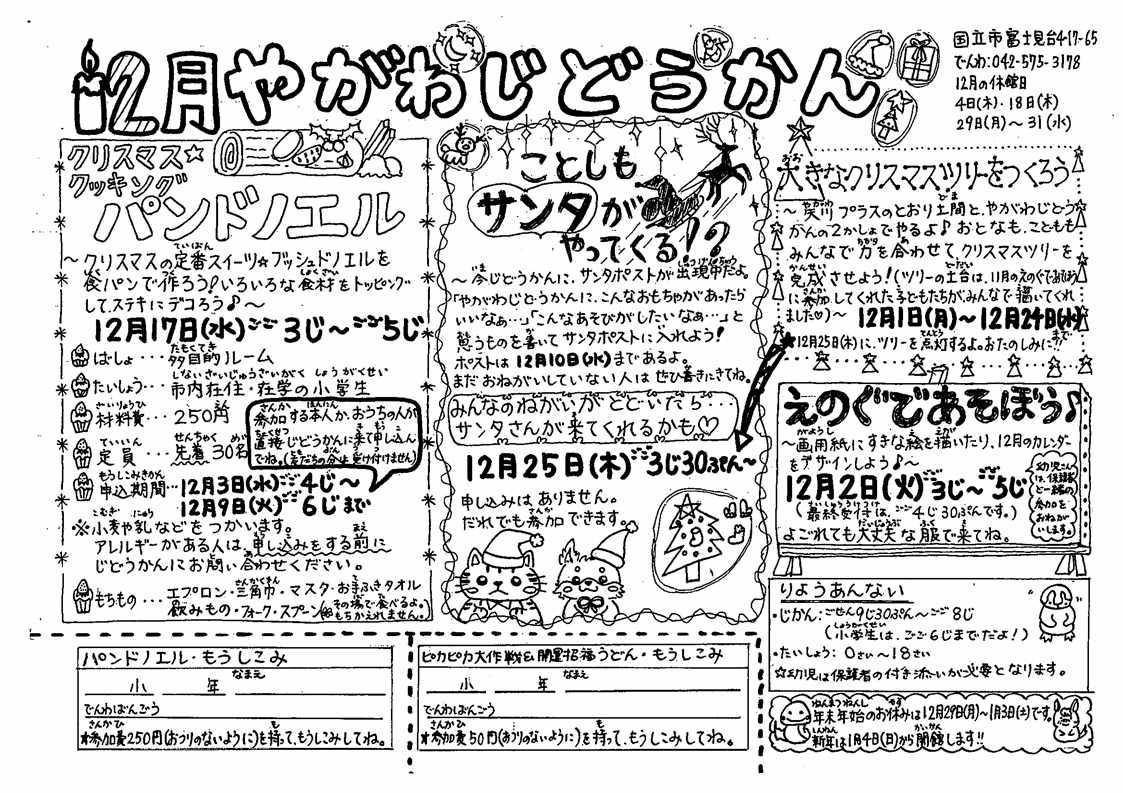 12月やがわじどうかん
国立市富士見台4-17-65
でんわ:042-575-3178
12月の休館日
4日(木)・18日(木)
29日(月)～31(水)
クリスマス☆
クッキング
パンドノエル
～クリスマスの定番スイーツ☆ブッシュドノエルを
食パンで作ろう♪いろいろな食材をトッピング
してステキにデコろう♪～
12月17日(水)ごご3じ～ごご5じ
ばしょ・・・多目的ルーム
たいしょう・・・市内在住・在学の小学生
材料費・・・250円
定員・・・先着30名
申込期間・・・12月3日(水)ごご4じ～
12月9日(火)ごご6じまで
参加する本人か、おうちの人が
直接じどうかんに来て申し込ん
でね。(友だちの分は受け付けません)
※小麦や乳などをつかいます。
アレルギーがある人は、申し込みをする前に
じどうかんにお問い合わせください。
もちもの・・・エプロン・三角巾・マスク・お手ふきタオル
飲みもの・フォーク・スプーン
その場で食べるよ。
もちかえれません。
ことしも
サンタが
やってくる!?
～今じどうかんに、サンタポストが出現中だよ。
「やがわじどうかんに、こんなおもちゃがあったら
いいなぁ…」「こんなあそびがしたいなぁ…」と
思うものを書いてサンタポストに入れよう!
ポストは12月10日(水)まであるよ。
まだおねがいしていない人はぜひ書きにきてね。
みんなのねがいがとどいたら・・・
サンタさんが来てくれるかも♡
12月25日(木)ごご3じ30ぷん～
申し込みはありません。
だれでも参加できます。
大きなクリスマスツリーをつくろう
～矢川プラスのとおり土間と、やがわじどう
かんの2かしょでやるよ♪おとなも、こどもも
みんなで力を合わせてクリスマスツリーを
完成させよう!(ツリーの土台は、11月のえのぐであそぼう
に参加してくれた子どもたちが、みんなで描いてくれ
ました♡)～12月1日(月)～12月24日(水)まで
★12月25日(木)に、ツリーを点灯するよ。おたのしみに!!
えのぐであそぼう♪
～画用紙にすきな絵を描いたり、12月のカレンダー
をデザインしよう♪～
12月2日(火)ごご3じ～ごご5じ
(最終受付は、ごご4じ30ぷんです。)
よごれても大丈夫な服で来てね。
幼児さん
は、保護者
と一緒の
参加を
おねが
いします。
りょうあんない
・じかん:ごぜん9じ30ぷん～ごご8じ
(小学生は、ごご6じまでだよ!)
・たいしょう:0さい～18さい
☆幼児は保護者の付き添いが必要となります。
年末年始のお休みは12月29日(月)～1月3日(土)です。
新年は1月4日(日)から開館します!!
パンドノエル・もうしこみ
小 年 なまえ
でんわばんごう
★参加費250円(おつりのないように)を持って、もうしこみしてね。
ピカピカ大作戦&開運招福うどん・もうしこみ
小 年 なまえ
でんわばんごう
★参加費50円(おつりのないように)を持って、もうしこみしてね。